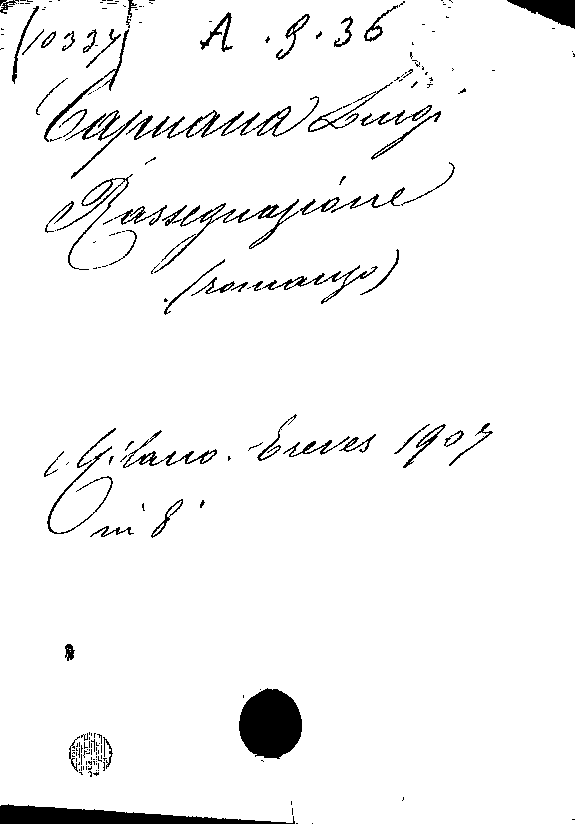 (10337) A.9.36
Capuana Luigi
Rassegnazione
(romanzo)
Milano. Treves 1907
in 8°